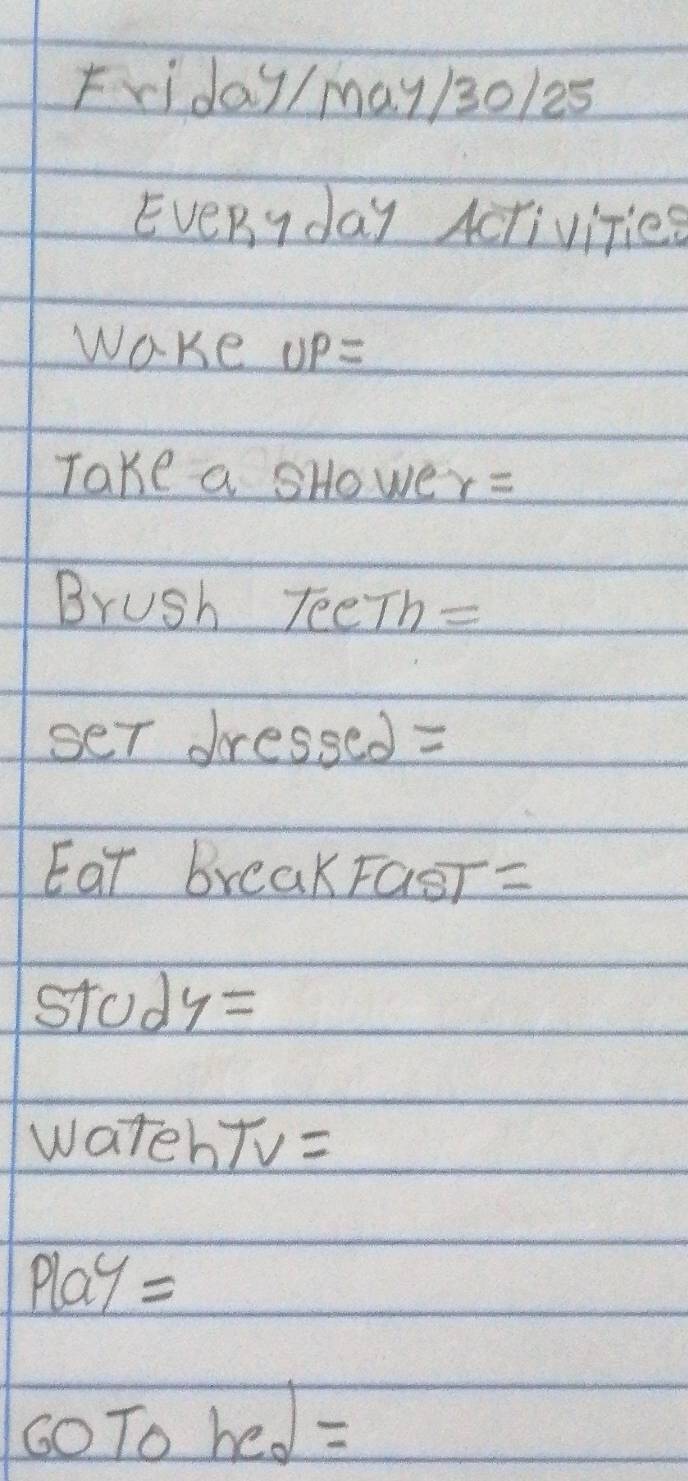 Friday/may/30/25
Everyday Activities
Wake up=
Take a shower=
Brush Teeth=
set dressed=
Eat breakFast=
study=
watehTv=
Play=
GO TO hed=